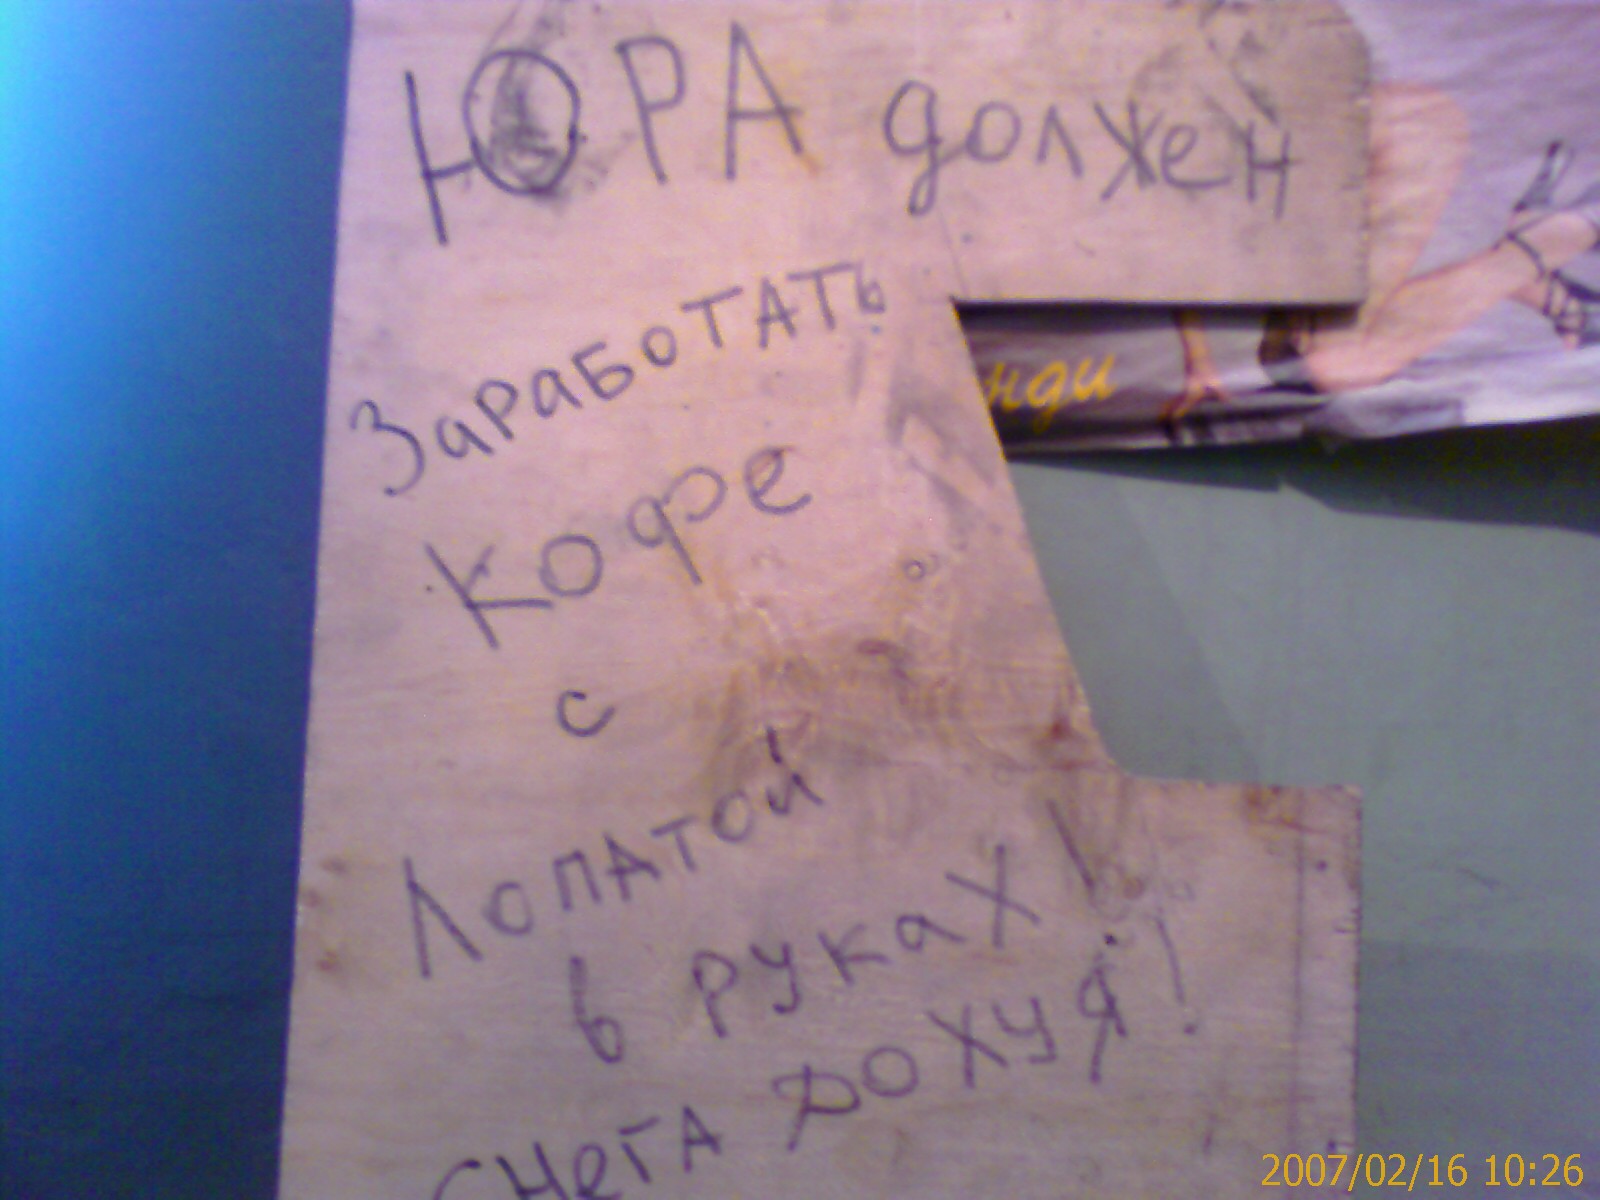 ЮРА должен
Заработать
Кофе
с
Лопатой
в руках!
Снега дохуя!
нди
2007/02/16 10:26